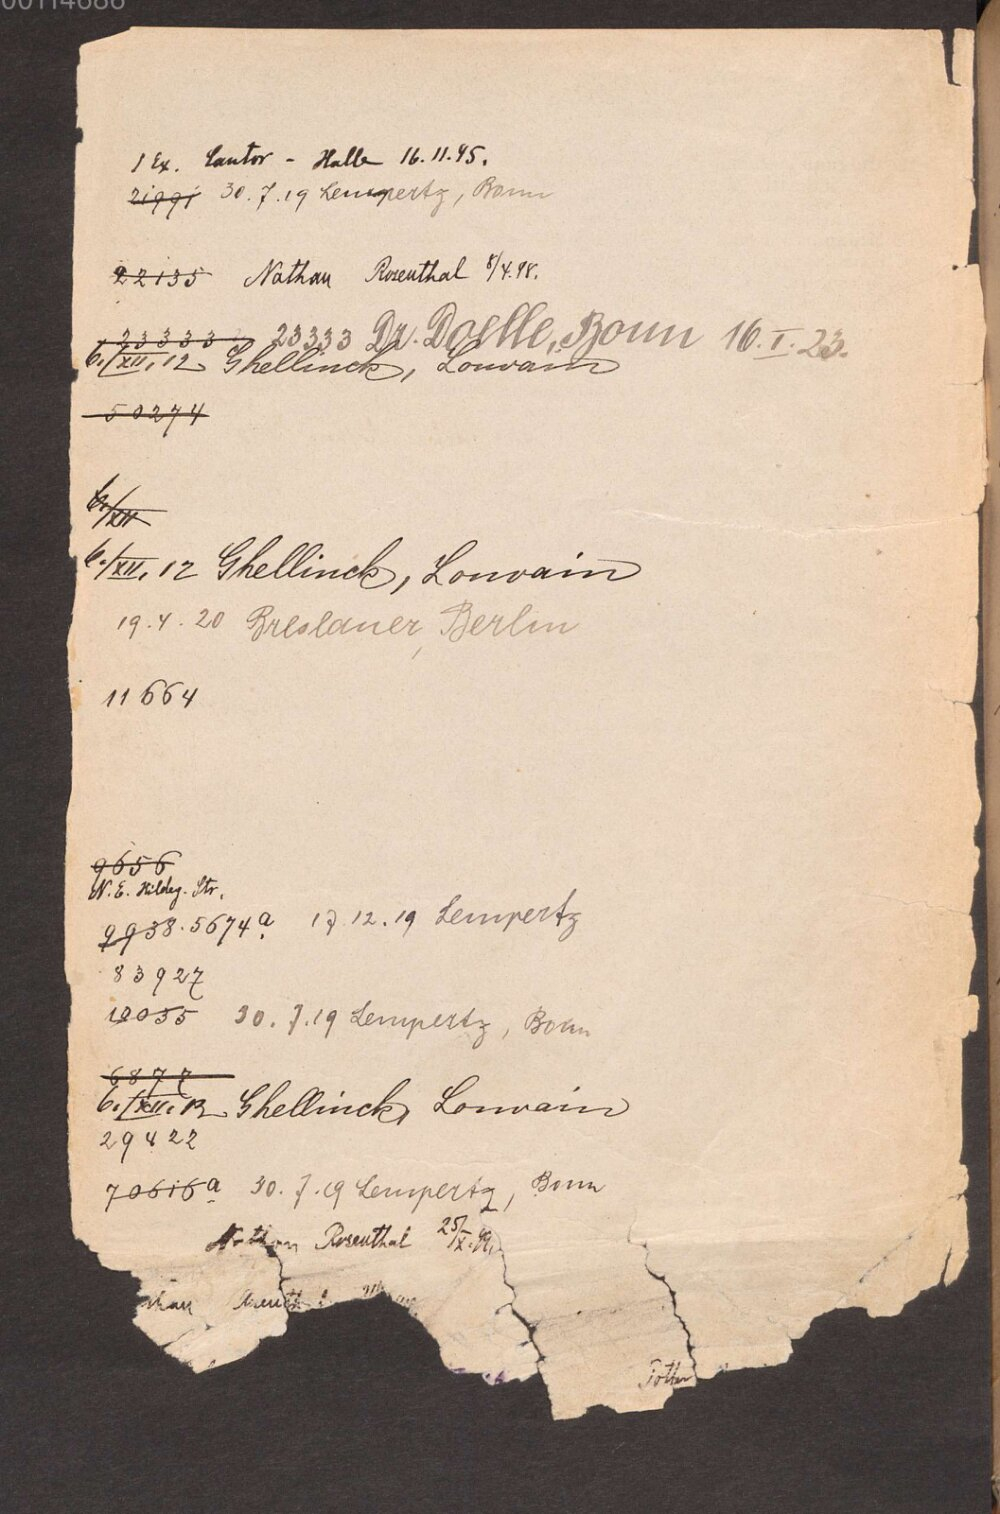 00114686
1 Ex. Cantor - Halle 16.11.95.
21991 30.7.19 Lempertz, Bonn
22135 Nathan Rosenthal 8/4.98.
23333 23333 Dr. Doelle, Bonn 16.I.23.
6./XII.12 Ghellinck, Louvain
50274
6./XII
6./XII.12 Ghellinck, Louvain
19.4.20 Breslauer, Berlin
11664
9656
N.E. Hildeg. Str.
9938.5674a 17.12.19 Lempertz
83927
10035 30.7.19 Lempertz, Bonn
6877
6./XII.12 Ghellinck, Louvain
29422
70616a 30.7.19 Lempertz, Bonn
Nathan Rosenthal 25/X.99.